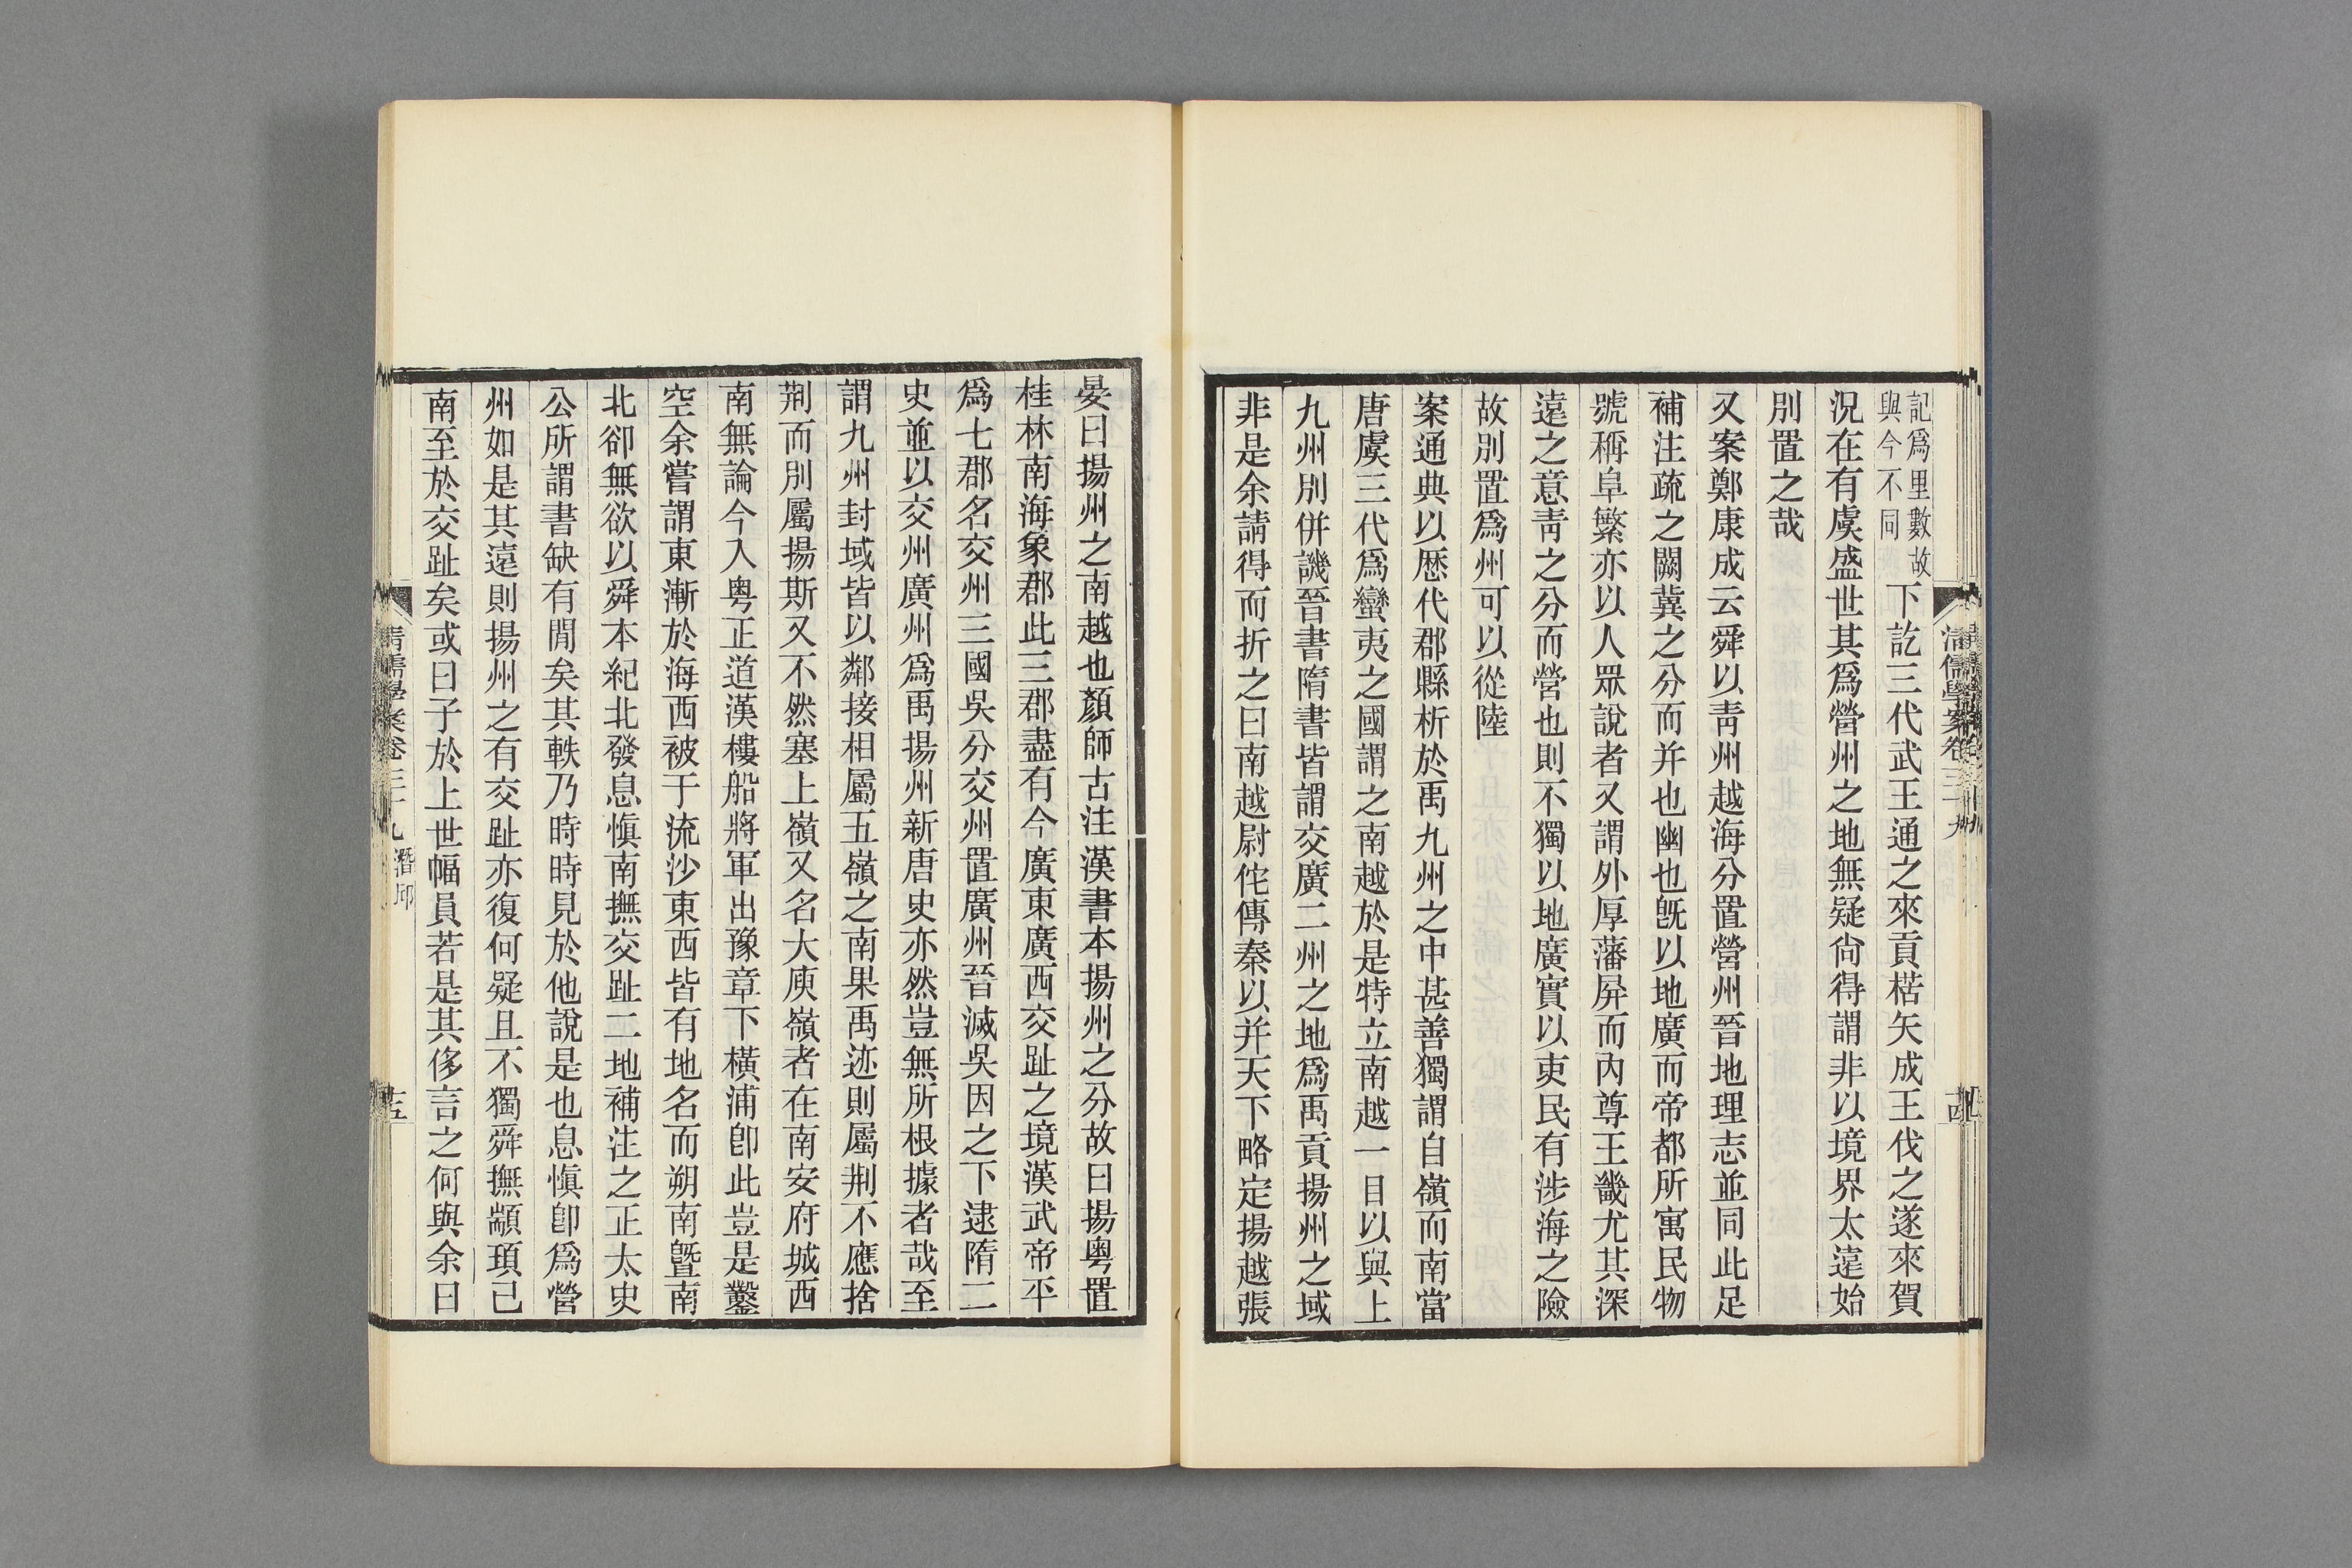 記爲里數故
與今不同
下訖三代武王通之來貢楛矢成王伐之遂來賀
況在有虞盛世其爲營州之地無疑尙得謂非以境界太遠始
別置之哉
又案鄭康成云舜以靑州越海分置營州晉地理志並同此足
補注疏之闕冀之分而并也幽也旣以地廣而帝都所寓民物
號稱阜繁亦以人眾說者又謂外厚藩屛而內尊王畿尤其深
遠之意靑之分而營也則不獨以地廣實以吏民有涉海之險
故別置爲州可以從陸
案通典以歷代郡縣析於禹九州之中甚善獨謂自嶺而南當
唐虞三代爲蠻夷之國謂之南越於是特立南越一目以與上
九州別併譏晉書隋書皆謂交廣二州之地爲禹貢揚州之域
非是余請得而折之曰南越尉佗傳秦以并天下略定揚越張
晏曰揚州之南越也顏師古注漢書本揚州之分故曰揚粵置
桂林南海象郡此三郡盡有今廣東廣西交趾之境漢武帝平
爲七郡名交州三國吳分交州置廣州晉滅吳因之下逮隋二
史並以交州廣州爲禹揚州新唐史亦然豈無所根據者哉至
謂九州封域皆以鄰接相屬五嶺之南果禹迹則屬荆不應捨
荆而別屬揚斯又不然塞上嶺又名大庾嶺者在南安府城西
南無論今入粵正道漢樓船將軍出豫章下橫浦卽此豈是鑿
空余嘗謂東漸於海西被于流沙東西皆有地名而朔南曁南
北卻無欲以舜本紀北發息愼南撫交趾二地補注之正太史
公所謂書缺有閒矣其軼乃時時見於他說是也息愼卽爲營
州如是其遠則揚州之有交趾亦復何疑且不獨舜撫顓頊已
南至於交趾矣或曰子於上世幅員若是其侈言之何與余曰
清儒學案卷三十九 潛邱
十五